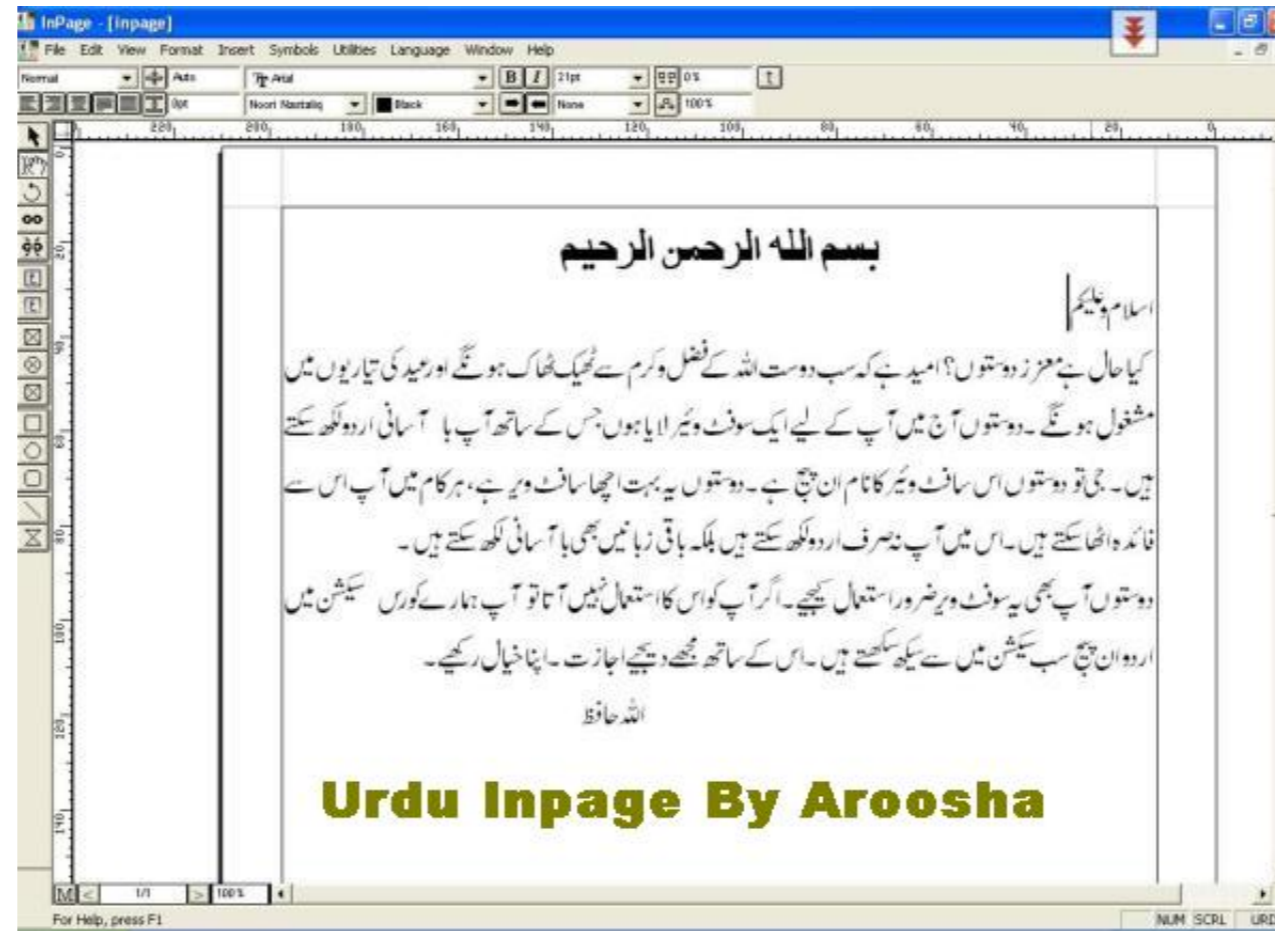 InPage - [inpage]
File Edit View Format Insert Symbols Utilities Language Window Help
Normal Auto Arial B I 21pt 0% 
0pt Noori Nastaliq Black None 100%
220 200 180 160 140 120 100 80 60 40 20 0
بسم الله الرحمن الرحيم
اسلام وعلیکم
کیا حال ہے معزز دوستوں؟ امید ہے کہ سب دوست اللہ کے فضل و کرم سے ٹھیک ٹھاک ہونگے اور عید کی تیاریوں میں
مشغول ہونگے ۔دوستوں آج میں آپ کے لیے ایک سوفٹ وئیر لایا ہوں جس کے ساتھ آپ با آسانی اردو لکھ سکتے
ہیں۔ جی تو دوستوں اس سافٹ وئیر کا نام ان پیج ہے ۔دوستوں یہ بہت اچھا سافٹ ویر ہے، ہر کام میں آپ اس سے
فائدہ اٹھا سکتے ہیں ۔اس میں آپ نہ صرف اردو لکھ سکتے ہیں بلکہ باقی زبانیں بھی با آسانی لکھ سکتے ہیں ۔
دوستوں آپ بھی یہ سوفٹ ویر ضرور استعمال کیجیے۔اگر آپ کو اس کا استعمال نہیں آتا تو آپ ہمارے کورس سیکشن میں
اردو ان پیج سب سیکشن میں سے سیکھ سکھتے ہیں ۔اس کے ساتھ مجھے دیجیے اجازت ۔اپنا خیال رکھیے۔
اللہ حافظ
Urdu Inpage By Aroosha
0 20 40 60 80 100 120 140
M < 1/1 > 100%
For Help, press F1 NUM SCRL URD